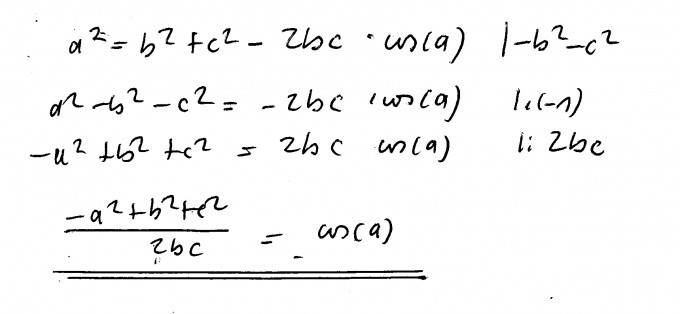 a² = b² + c² - 2bc · cos(a) |-b²-c²
a² - b² - c² = -2bc · cos(a) |·(-1)
-a² + b² + c² = 2bc cos(a) |: 2bc
\frac{-a²+b²+c²}{2bc} = cos(a)